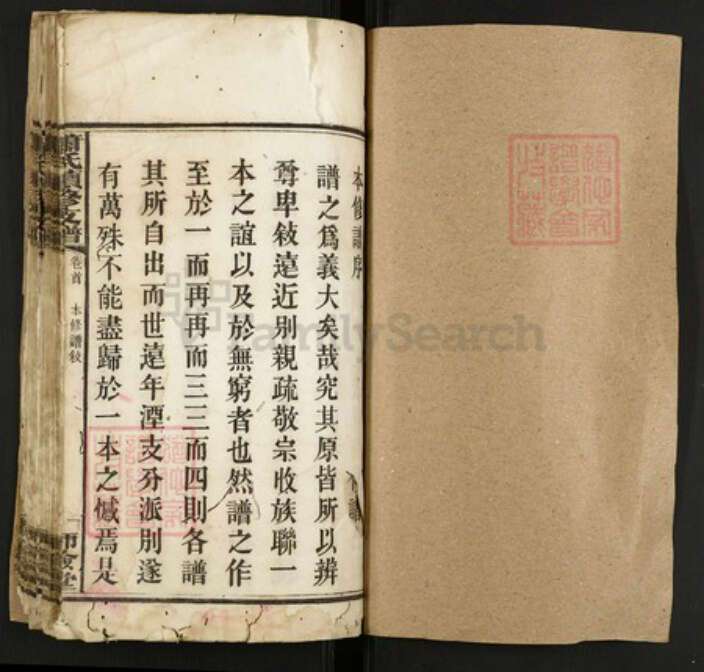 本修譜序
譜之為義大矣哉究其原皆所以辨
尊卑敍遠近別親疏敬宗收族聯一
本之誼以及於無窮者也然譜之作
至於一而再再而三三而四則各譜
其所自出而世遠年湮支分派別遂
有萬殊不能盡歸於一本之憾焉是
蕭氏續修支譜
卷首 本修譜敘
師儉堂
FamilySearch